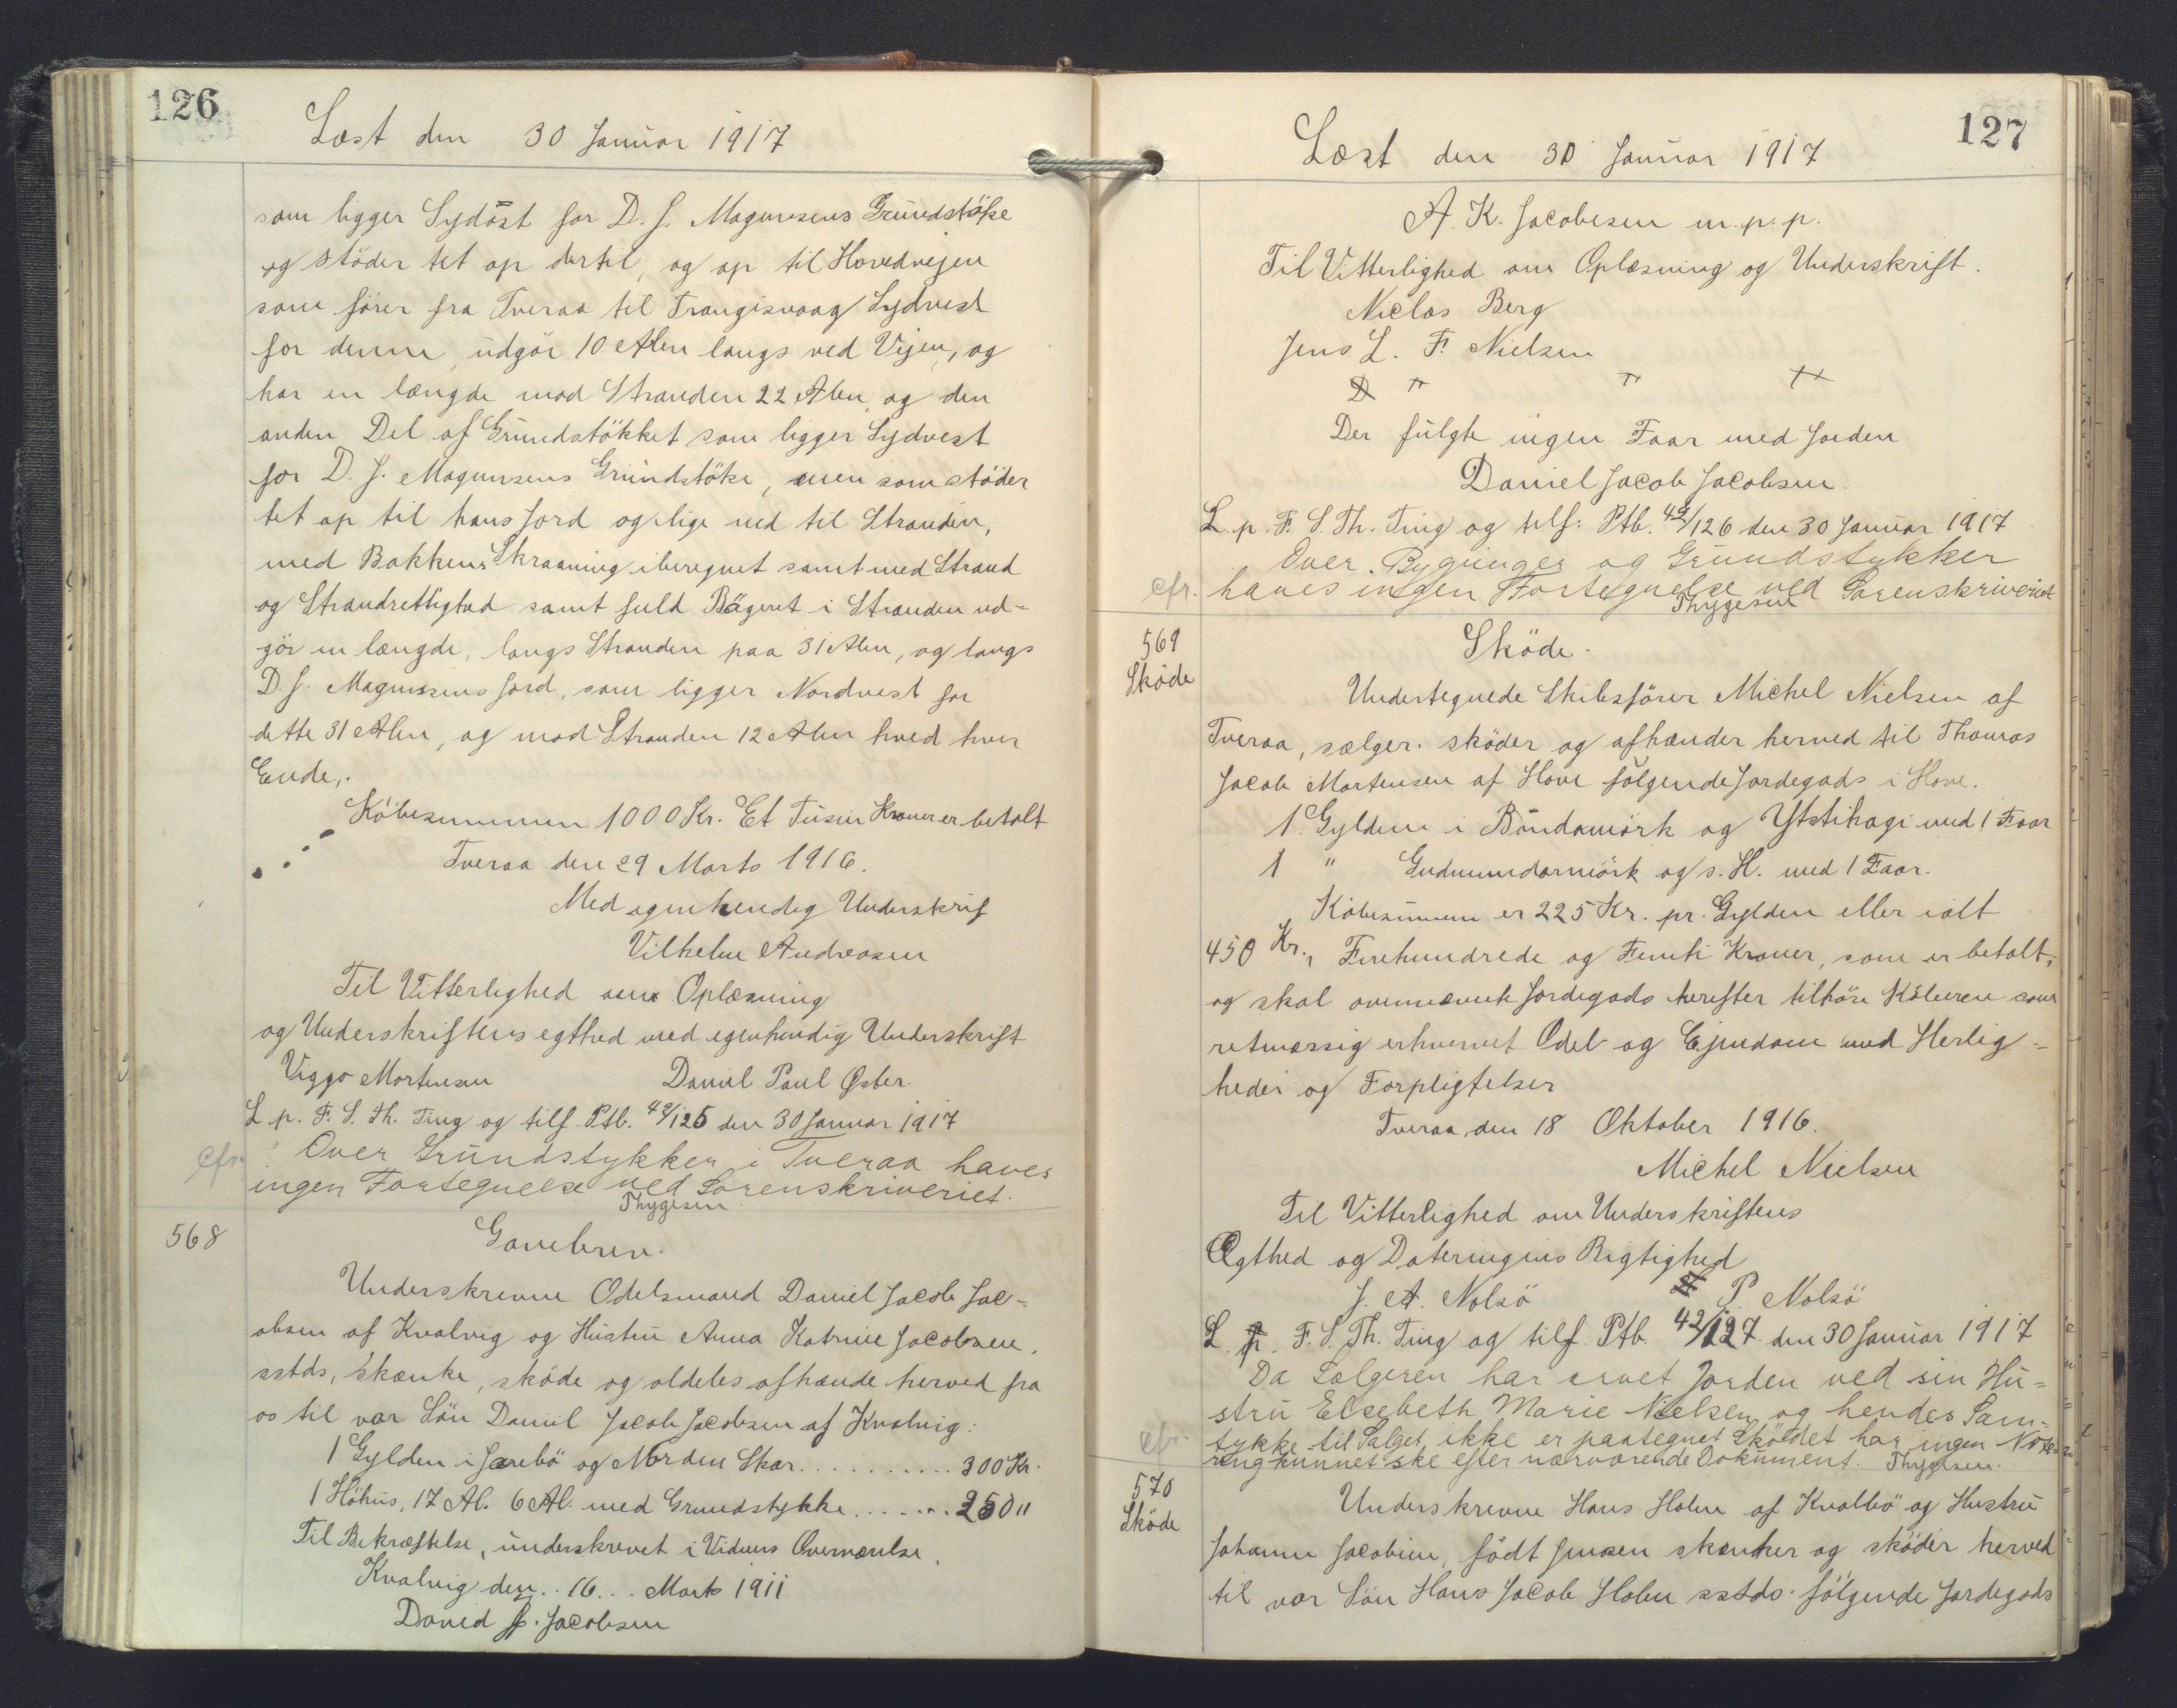 126
Læst den 30 Januar 1917
som ligger Sydöst for D. J. Magnussens Grundstöke
og stöder tet op dertil, og op til Hovedvejen
som förer fra Tveraa til Trangisvaag Sydvest
for denne, udgör 10 Alen langs ved Vejen, og
har en længde mod Stranden 22 Alen, og den
anden Del af Grundstökket som ligger Sydvest
for D. J. Magnussens Grundstöke, men som stöder
tet op til hans Jord og lige ned til Stranden,
med Bakkens Skraaning iberegnet samt med Strand
og Strandrettighed samt fuld Bägeret i Stranden ud-
gör en længde, langs Stranden paa 31 Alen, og langs
D. J. Magnussens Jord, som ligger Nordvest for
dette 31 Alen, og mod Stranden 12 Alen hved hver
Ende,.
Köbesummen 1000 Kr. Et Tusin Kroner er betalt
Tveraa den 29 Marts 1916.
Med egenhendig Underskrif
Vilhelm Andreasen
Til Vitterlighed om Oplæsning
og Underskriftens egthed med egenhendig Underskrift
Viggo Mortensen Daniel Paul Øster.
L. p. F. S. Th. Ting og tilf. Ptb. 42/126 den 30 Januar 1917
cfr. Over Grundstykker i Tveraa haves
ingen Fortegnelse ved Sorenskriveriet.
Thygesen
568
Gavebrev.
Underskrevne Odelsmand Daniel Jacob Jac-
obsen af Kvalvig og Hustru Anna Katrine Jacobsen,
sstds, skænke, sköde og aldeles afhænde herved fra
os til vor Sön Daniel Jacob Jacobsen af Kvalvig:
1 Gylden i Jarebö og Norden Skar........... 300 Kr.
1 Höhus, 17 Al. 6 Al. med Grundstykke....... 250 "
Til Bekræftelse, underskrevet i Vidners Overværelse.
Kvalvig den.. 16... Marts 1911
David J. Jacobsen
127
Læst den 30 Januar 1917
A. K. Jacobsen m. p. p.
Til Vitterlighed om Oplæsning og Underskrift.
Niclas Berg
Jens L. F. Nielsen
Der fulgte ingen Faar med Jorden
Daniel Jacob Jacobsen.
L. p. F. S. Th. Ting og tilf. Ptb. 42/126 den 30 Januar 1917
Over Bygninger og Grundstykker
cfr. haves ingen Fortegnelse ved Sorenskriveriet
Thygesen
569
Sköde
Sköde.
Undertegnede Skibsförer Michel Nielsen af
Tveraa, sælger. sköder og afhænder herved til Thomas
Jacob Mortensen af Hove fölgende Jordegods i Hove.
1. Gylden i Böndamörk og Ytstihagi med 1 Faar
1 " Gudmundarmörk og s. H. med 1 Faar.
Köbesummen er 225 Kr. pr. Gylden eller ialt
450 Kr., Firehundrede og Femti Kroner, som er betalt,
og skal ovennævnte Jordegods herefter tilhöre Köberen som
retmæssig erhvervet Odel og Ejendom med Herlig-
heder og Forpligtelser
Tveraa, den 18 Oktober 1916.
Michel Nielsen
Til Vitterlighed om Underskriftens
Ægthed og Dateringens Rigtighed
J. A. Nolsö P. Nolsö
L. p. F. S. Th. Ting og tilf. Ptb. 42/127 den 30 Januar 1917
Da Sælgeren har arvet Jorden ved sin Hu-
stru Elsebeth Marie Nielsen og hendes Sam-
cfr. tykke til Salget ikke er paategnet Sködet har ingen Note-
ring kunnet ske efter nærværende Dokument. Thygesen.
570
Sköde
Underskrevne Hans Holm af Kvalbö og Hustru
Johanne Jacobine, födt Jensen skænker og sköder herved
til vor Sön Hans Jacob Holm sstds. fölgende Jordegods